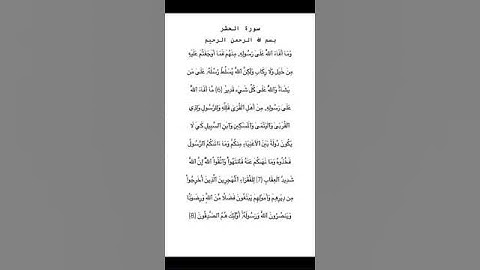 سورة الحشر
بسم الله الرحمن الرحيم
وَمَا أَفَاءَ اللَّهُ عَلَىٰ رَسُولِهِ مِنْهُمْ فَمَا أَوْجَفْتُمْ عَلَيْهِ
مِنْ خَيْلٍ وَلَا رِكَابٍ وَلَٰكِنَّ اللَّهَ يُسَلِّطُ رُسُلَهُ عَلَىٰ مَن
يَشَاءُ وَاللَّهُ عَلَىٰ كُلِّ شَيْءٍ قَدِيرٌ (6) مَّا أَفَاءَ اللَّهُ
عَلَىٰ رَسُولِهِ مِنْ أَهْلِ الْقُرَىٰ فَلِلَّهِ وَلِلرَّسُولِ وَلِذِي
الْقُرْبَىٰ وَالْيَتَٰمَىٰ وَالْمَسَٰكِينِ وَابْنِ السَّبِيلِ كَيْ لَا
يَكُونَ دُولَةً بَيْنَ الْأَغْنِيَاءِ مِنكُمْ وَمَا ءَاتَىٰكُمُ الرَّسُولُ
فَخُذُوهُ وَمَا نَهَىٰكُمْ عَنْهُ فَانتَهُوا وَاتَّقُوا اللَّهَ إِنَّ اللَّهَ
شَدِيدُ الْعِقَابِ (7) لِلْفُقَرَاءِ الْمُهَٰجِرِينَ الَّذِينَ أُخْرِجُوا
مِن دِيَٰرِهِمْ وَأَمْوَٰلِهِمْ يَبْتَغُونَ فَضْلًا مِّنَ اللَّهِ وَرِضْوَٰنًا
وَيَنصُرُونَ اللَّهَ وَرَسُولَهُ أُولَٰئِكَ هُمُ الصَّٰدِقُونَ (8)